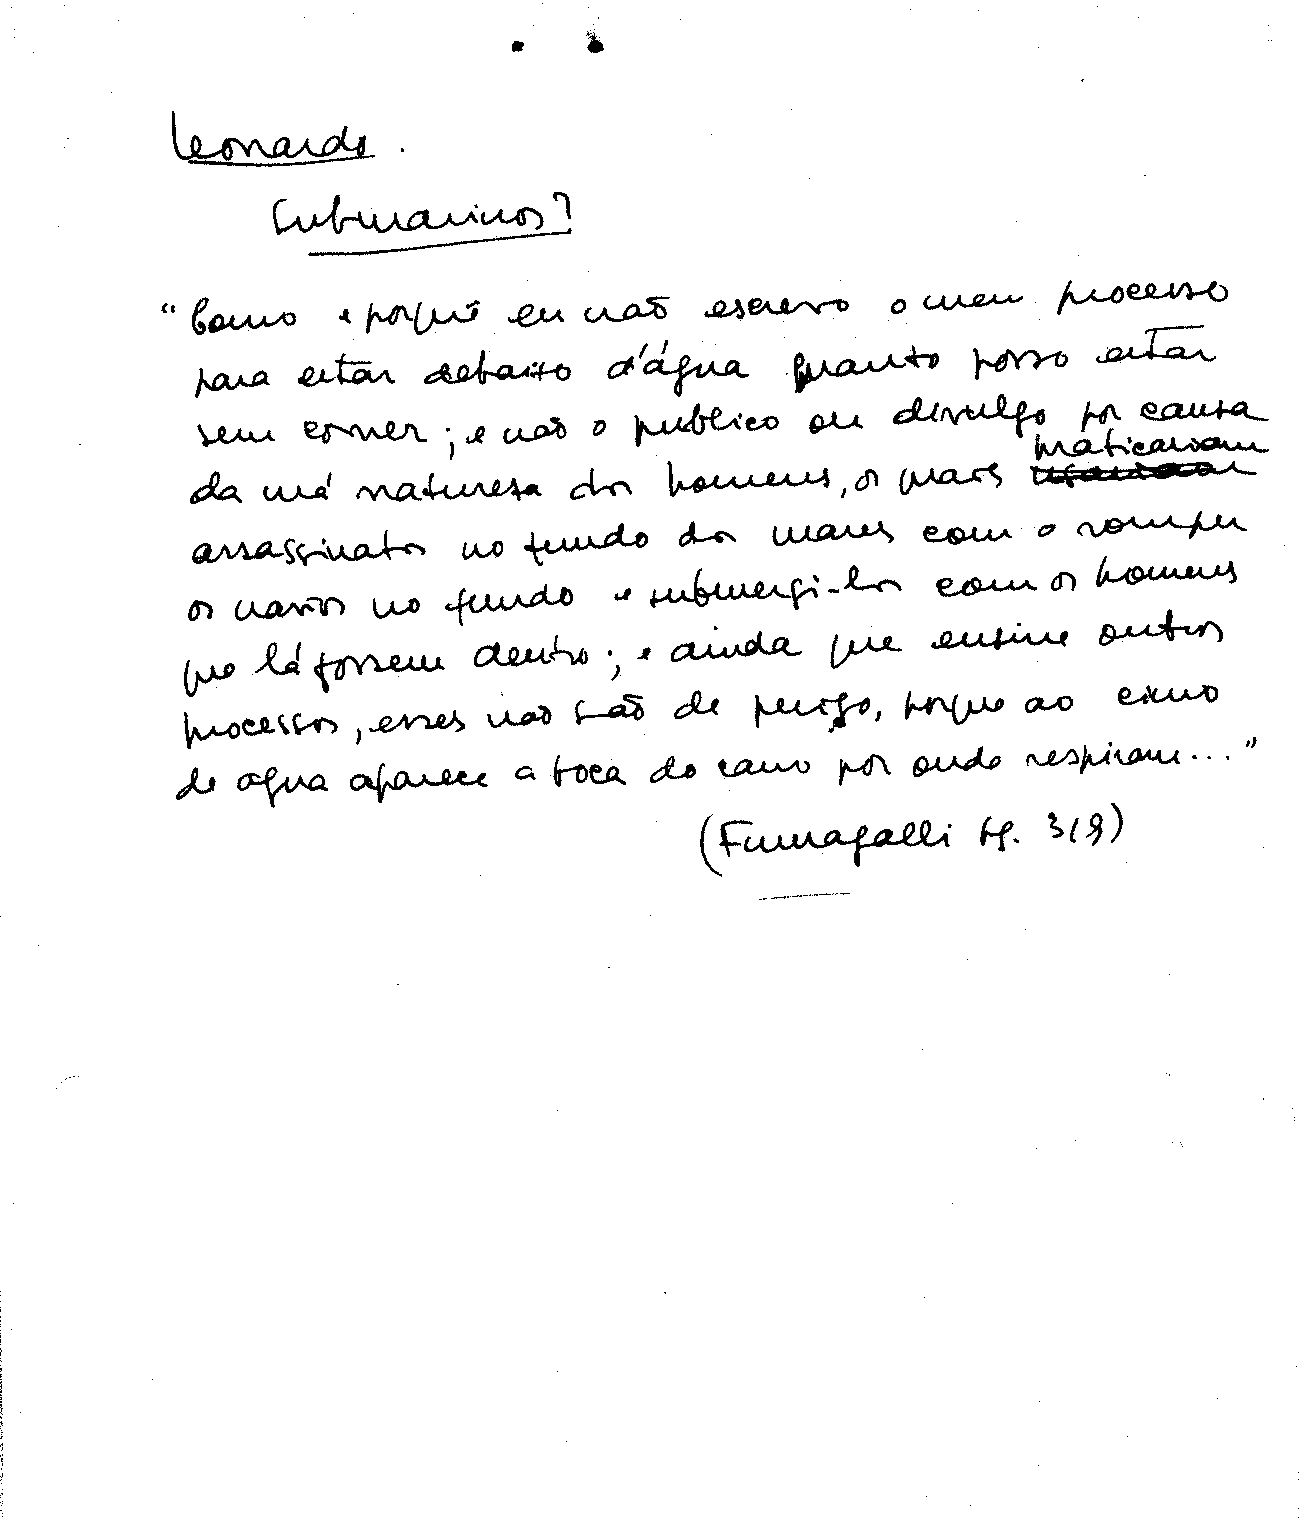 Leonardo.
Submarinos?
"Como e porquê eu não escrevo o meu processo
para estar debaixo d'água quanto posso estar
sem comer; e não o publico ou divulgo por causa
da má naturesa dos homens, os quaes praticariam
assassinatos no fundo dos mares com o romper
os navios no fundo e submergi-los com os homens
que lá fossem dentro; e ainda que ensine outros
processos, esses não são de perigo, porque ao cimo
de agua aparece a boca do cano por onde respiram..."
(Fumagalli pg. 319)